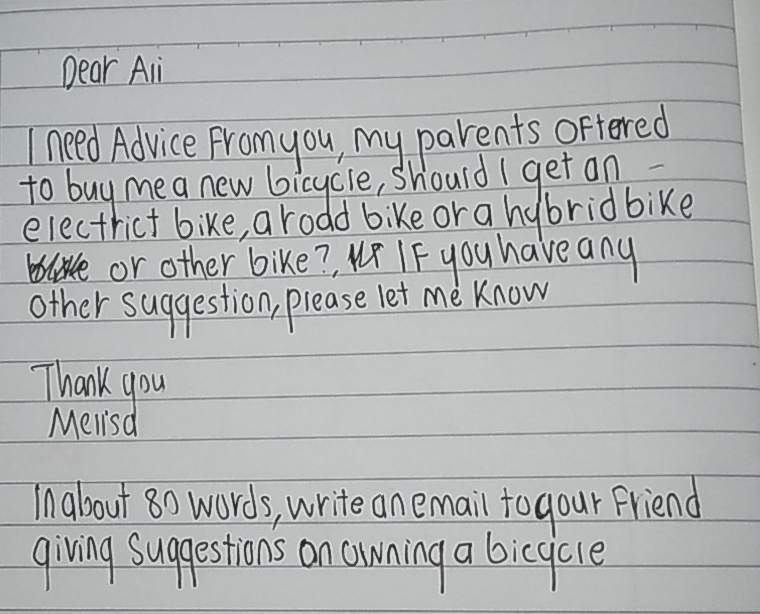 Dear Ali
I need Advice From you, my parents Offered
to buy me a new bicycle, should I get an -
electrict bike, a road bike or a hybrid bike
or other bike?, IF you have any
other suggestion, please let me know
Thank you
Melisa
In about 80 words, write an email to your Friend
giving Suggestions on owning a bicycle